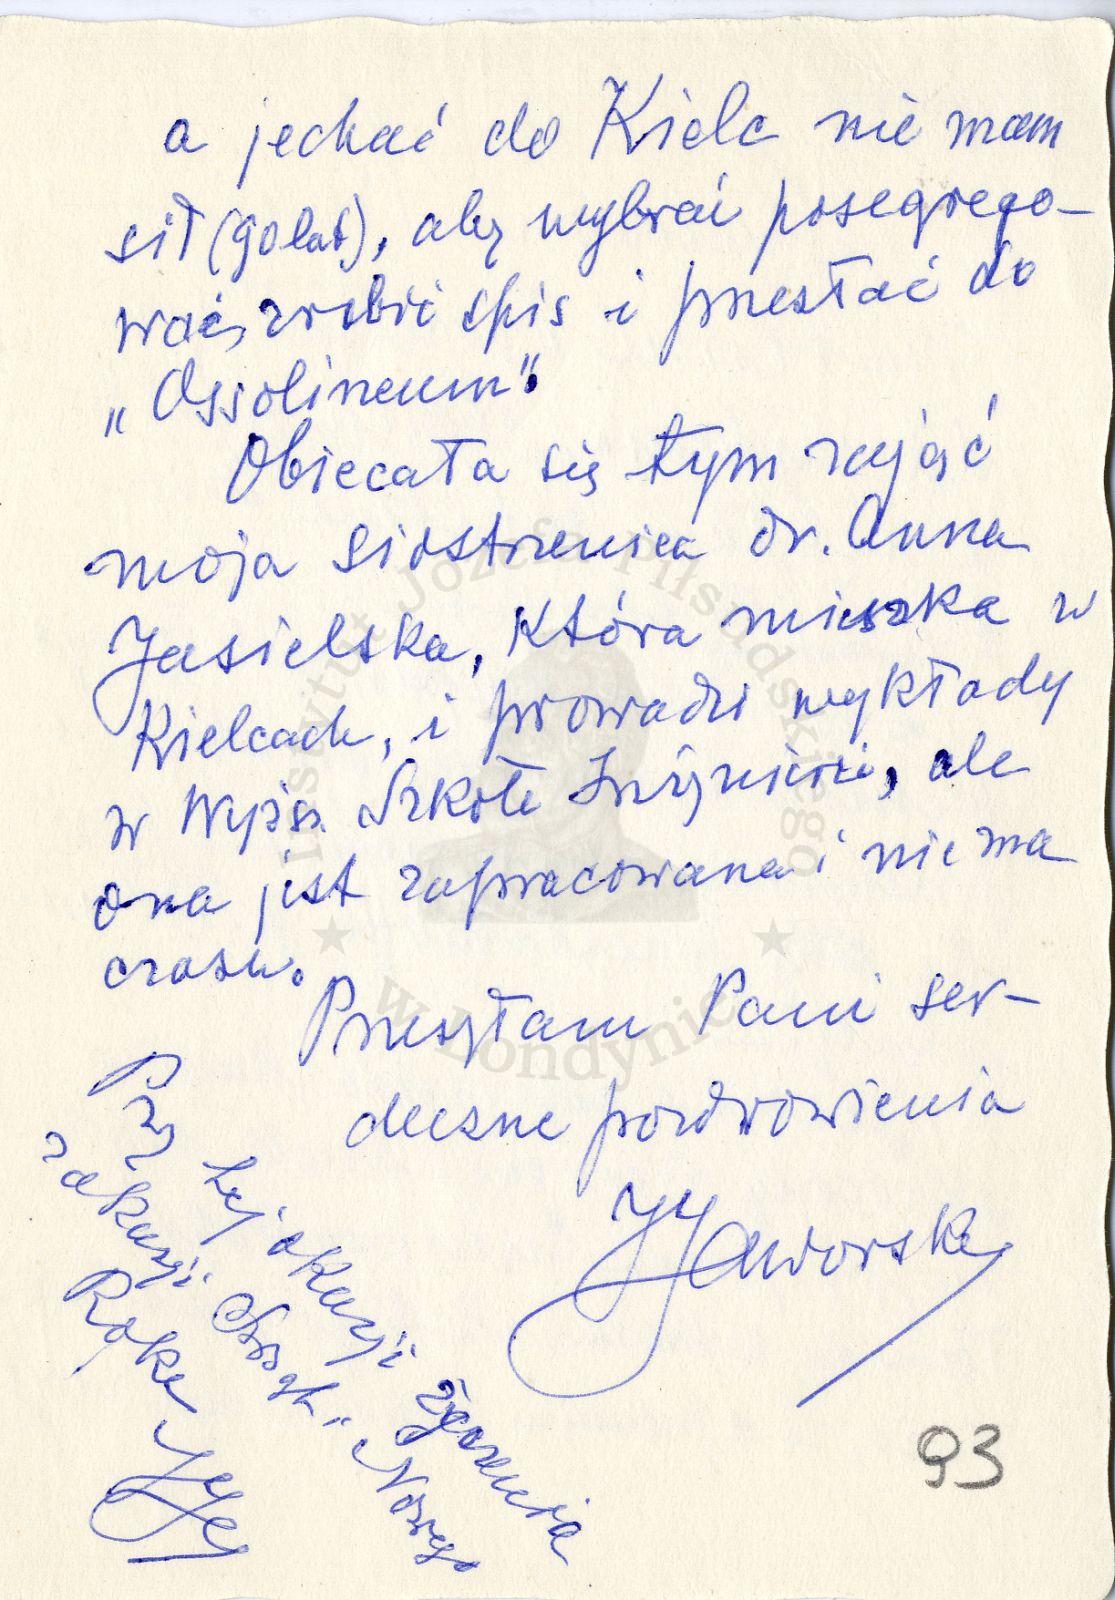 a jechać do Kielc nie mam
sił (90 lat), aby wybrać posegrego-
wać, zrobić spis i przesłać do
„Ossolineum".
Obiecała się tym zająć
moja siostrzenica dr. Anna
Jasielska, która mieszka w
Kielcach, i prowadzi wykłady
w Wyżs. Szkole Inżynierii, ale
ona jest zapracowana i nie ma
czasu.
Przesyłam Pani ser-
deczne pozdrowienia
JJaworski
Przy tej okazji życzenia
z okazji Świąt i Nowego
Roku JJ
93
Instytut Józefa Piłsudskiego
w Londynie